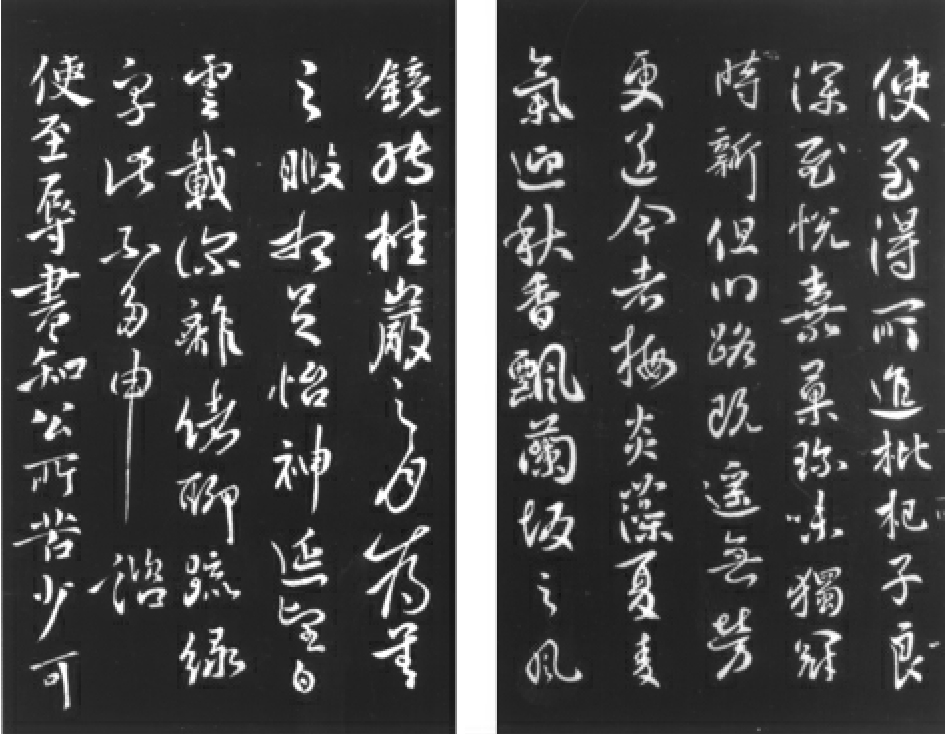 使至得所進枇杷子良
深慰悅嘉菓珍味獨冠
時新但川路既遙無勞
更送今者梅炎藻夏麥
氣迎秋香飄蘭坂之風
鏡轉桂巖之月為
之暇想足怡神延望白
雲載深離緒聊疏綠
字此不多申 諮
使至辱書知公所苦少可